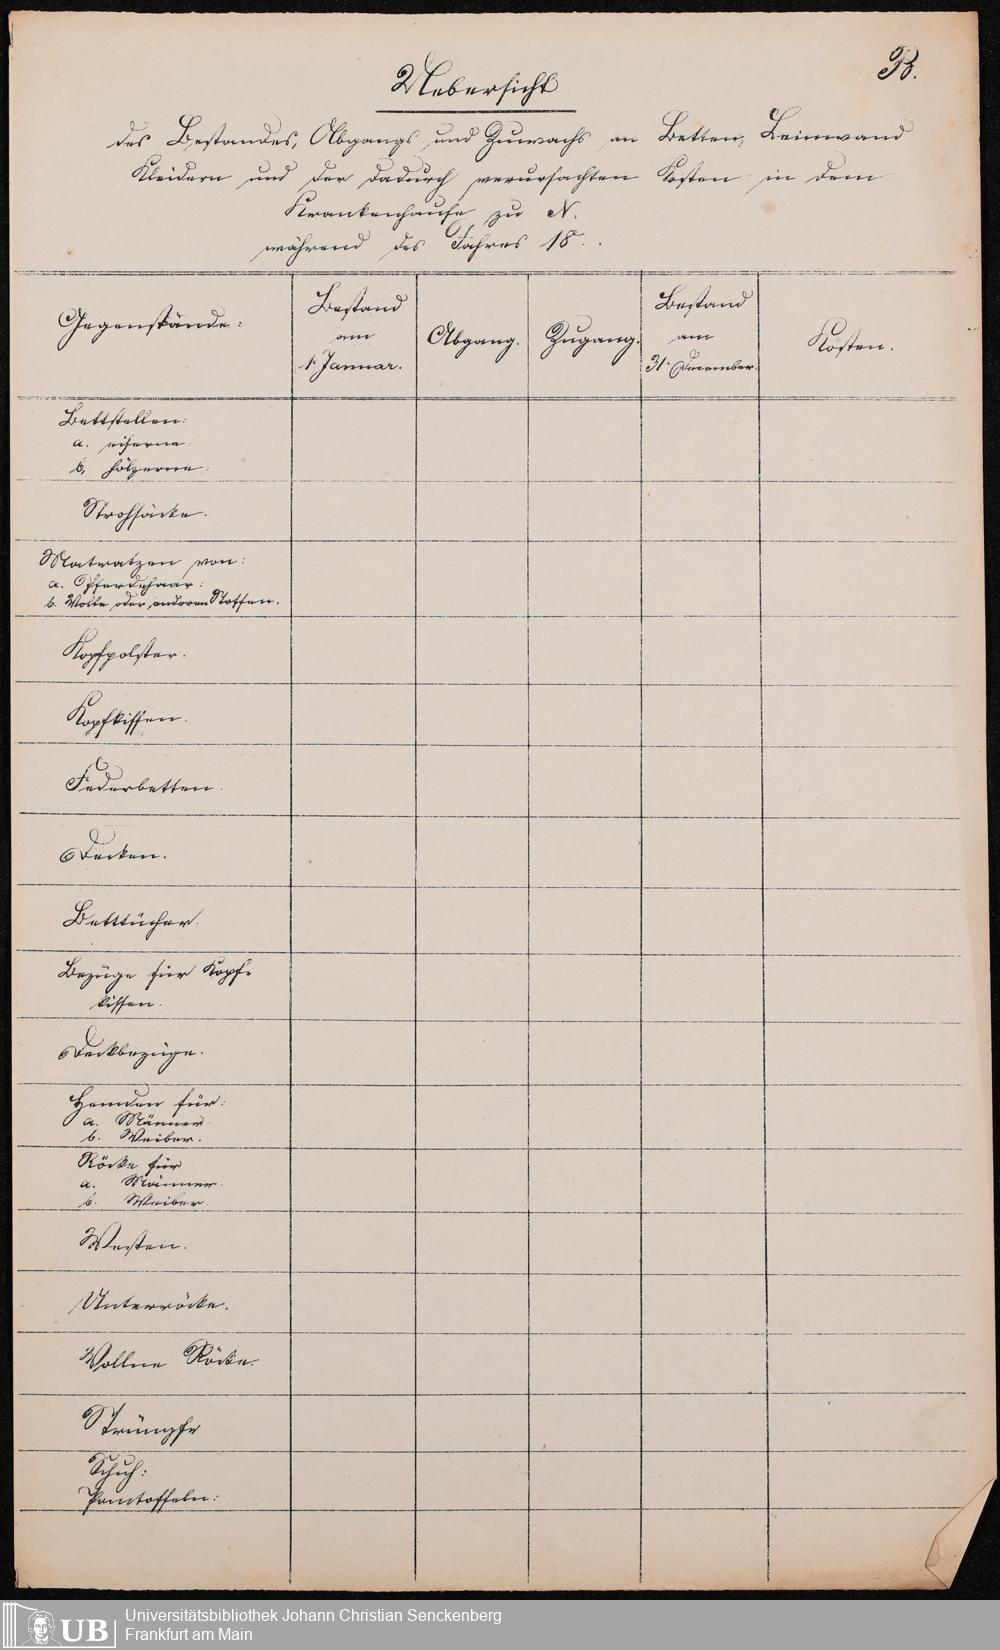 B.
Uebersicht
des Bestandes, Abgangs und Zuwachs an Betten, Leinwand
Kleidern und der dadurch verursachten Kosten in dem
Krankenhause zu N.
während des Jahres 18 . .
Gegenstände:
Bestand
am
1. Januar.
Abgang.
Zugang.
Bestand
am
31. December.
Kosten.
Bettstellen:
a. eiserne.
b. hölzerne.
Strohsäcke.
Matratzen von:
a. Pferdehaar:
b. Wolle oder anderen Stoffen.
Kopfpolster.
Kopfkissen.
Federbetten.
Decken.
Betttücher.
Bezüge für Kopf-
kissen.
Deckbezüge.
Hemden für:
a. Männer.
b. Weiber.
Röcke für
a. Männer.
b. Weiber.
Westen.
Unterröcke.
Wollne Röcke.
Strümpfe
Schuh:
Pantoffeln:
UB
Universitätsbibliothek Johann Christian Senckenberg
Frankfurt am Main